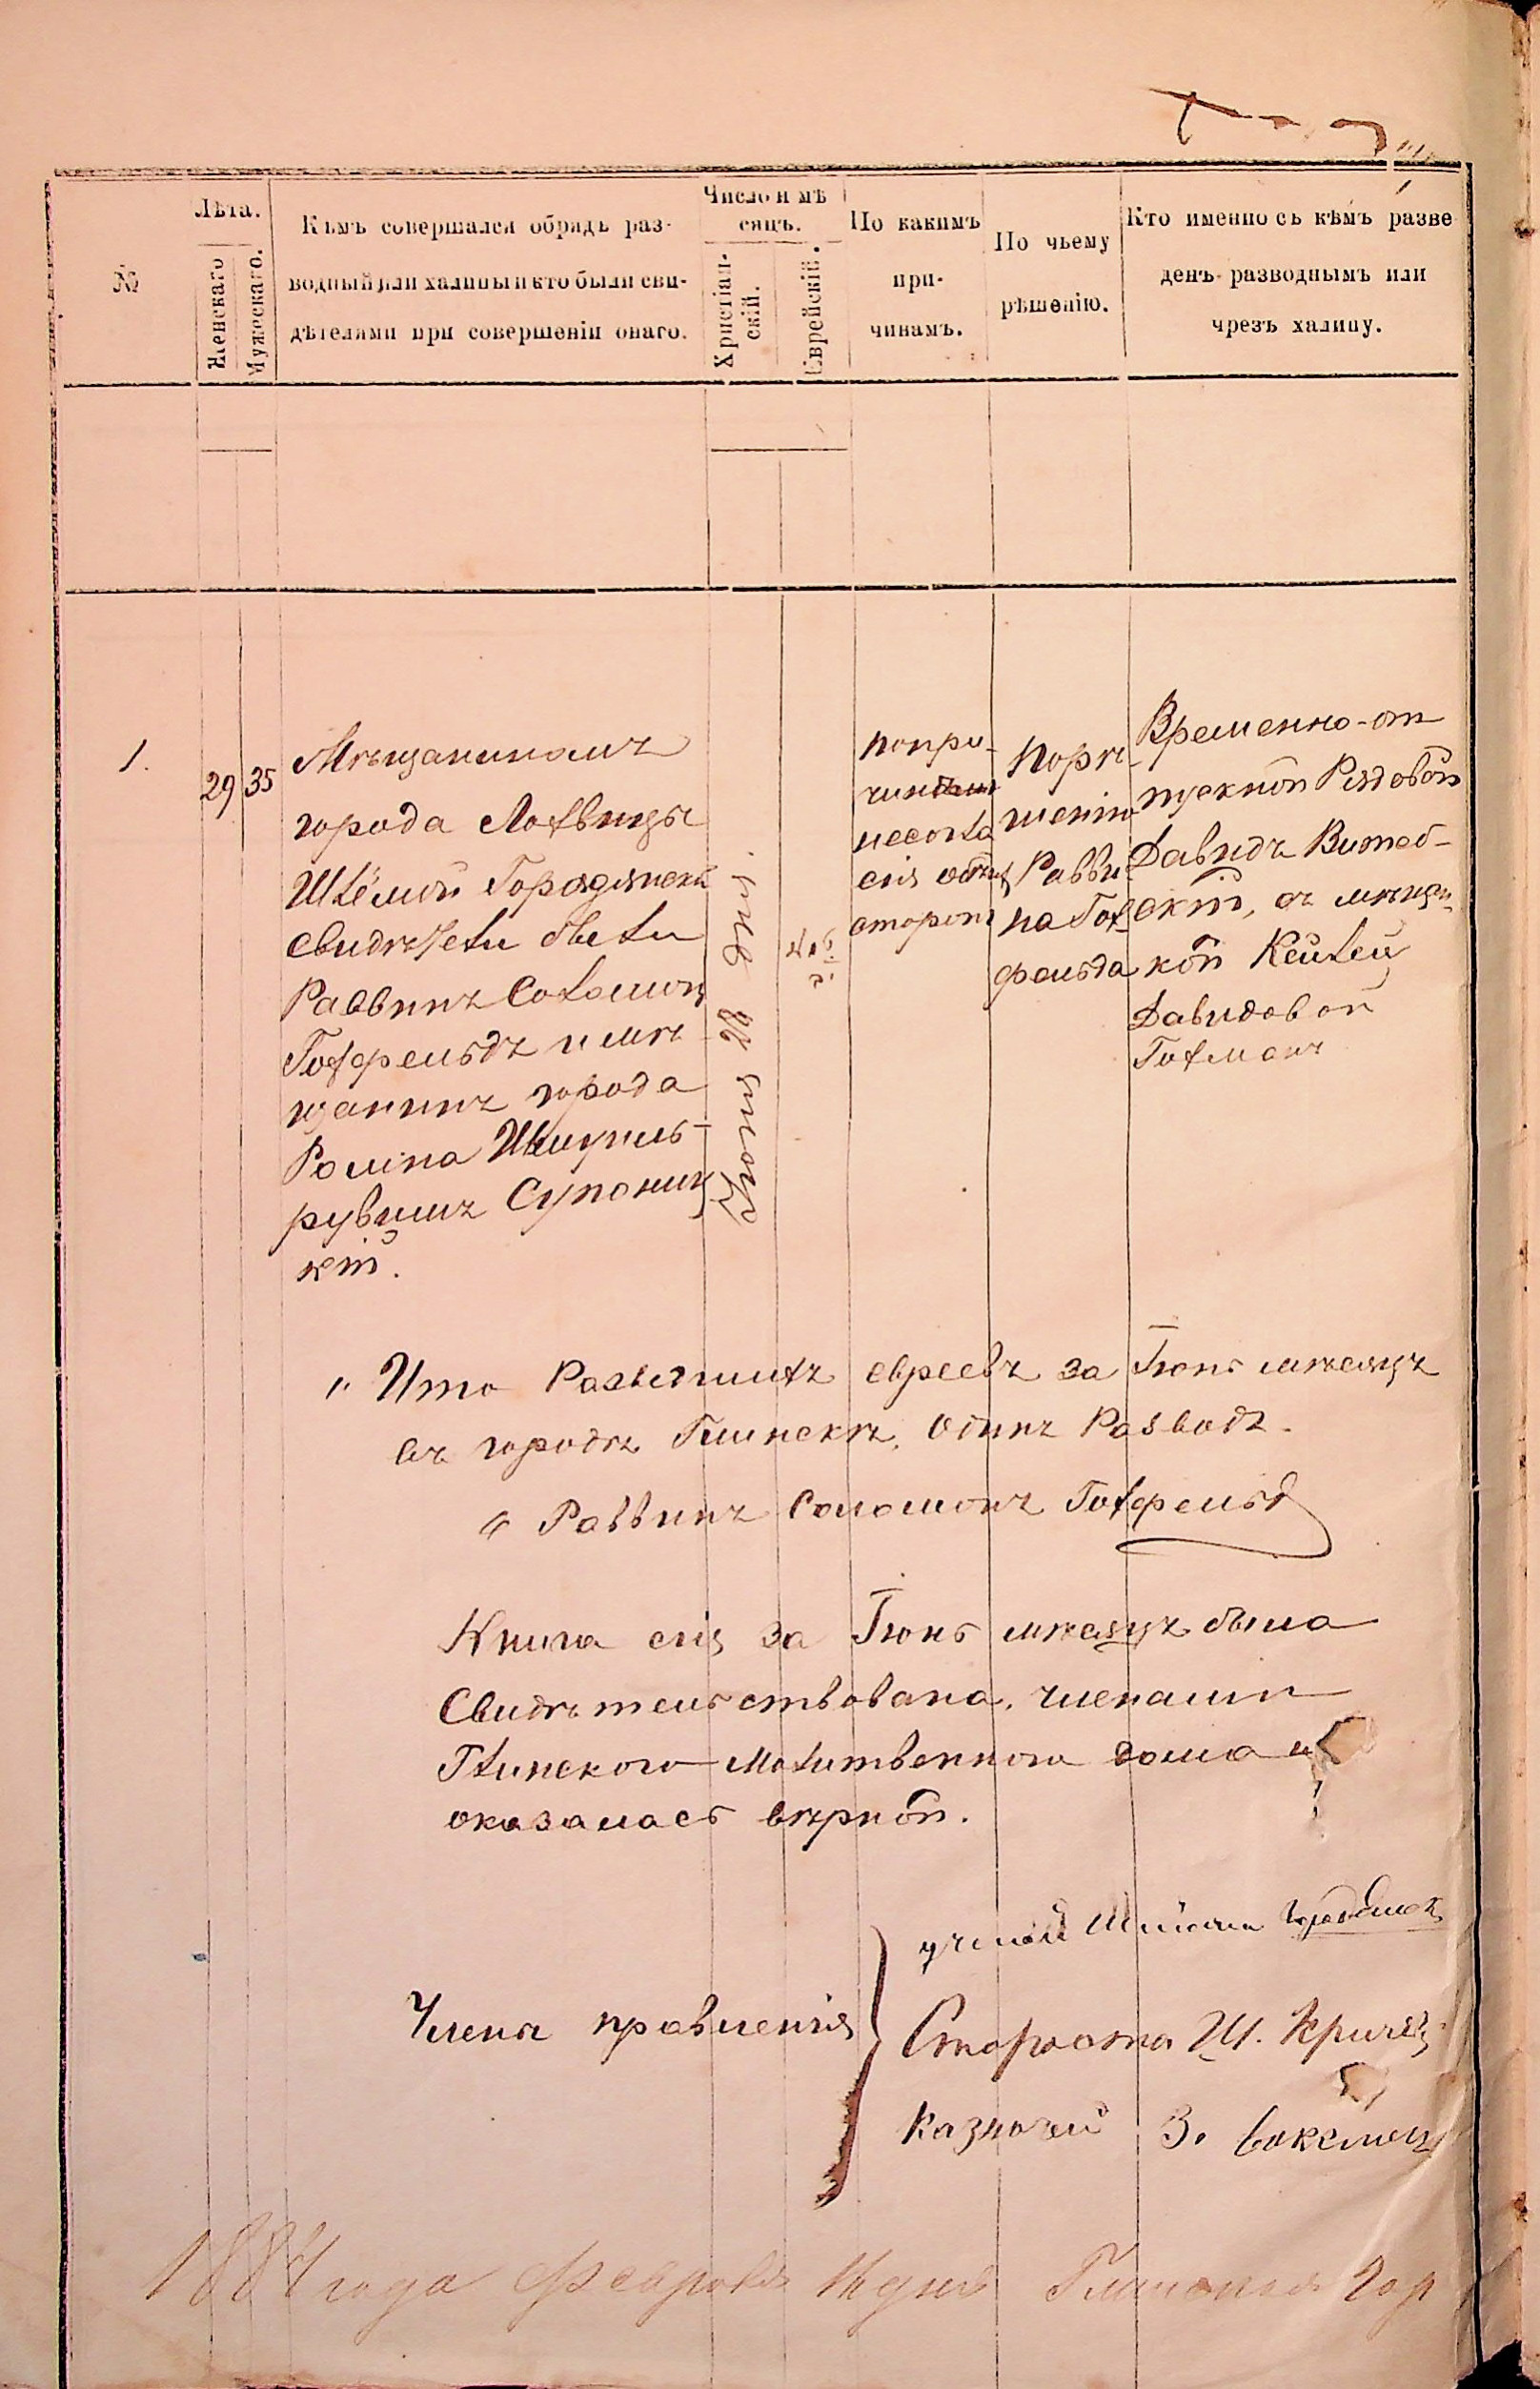 №
Лѣта.
Женскаго
Мужескаго.
Кѣмъ совершался обрядъ раз-
водный или халицы и кто были сви-
дѣтелями при совершеніи онаго.
Число и мѣ
сяцъ.
Христіан-
скій.
Еврейскій.
По какимъ
при-
чинамъ.
По чьему
рѣшенію.
Кто именно съ кѣмъ разве
денъ разводнымъ или
чрезъ халицу.
1.
29
35
Мѣщаниномъ
города Лохвицы
Шлёмой
свидѣтели были
Раввинъ Соломон
Гофельдъ и мѣ
щанинъ города
Ромна
рувимъ
кій.
Іюня 28 дня.
попри-
чинѣ
несогла
сія обѣих
сторон
Порѣ-
шенію
Равви
на Гоф
фельда
Временно-от
пускной Рядовой
Давидъ Витеб-
скій, съ мѣщан
кой Кейлей
Давидовой
Гофманъ
" Итого евреевъ за Іюнь мѣсяцъ
въ городѣ Глинскѣ, Одинъ Разводъ.
" Раввинъ Соломонъ Гофельд
Книга сія за Іюнь мѣсяцъ была
Свидѣтельствована, членами
Глинского Молитвенного дома и
оказалась вѣрной.
Члены правленія
ученый Шлiома
Староста Ш.
Казначей З.
1884 года Февраля дня Глинская Гор